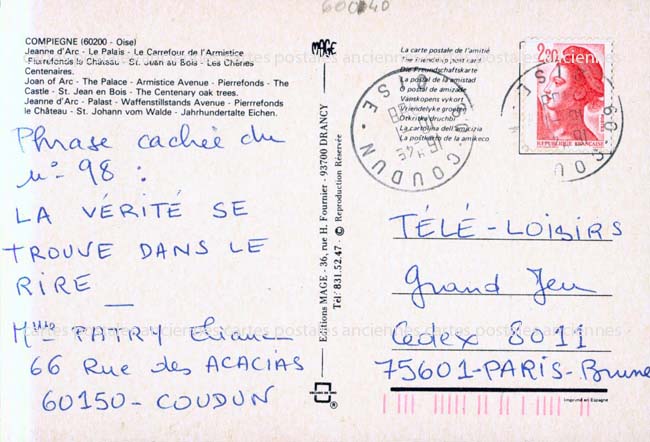 600040
COMPIEGNE (60200 - Oise)
Jeanne d'Arc - Le Palais - Le Carrefour de l'Armistice
Pierrefonds le Château - St. Jean au Bois - Les Chênes
Centenaires.
Joan of Arc - The Palace - Armistice Avenue - Pierrefonds - The
Castle - St. Jean en Bois - The Centenary oak trees.
Jeanne d'Arc - Palast - Waffenstillstands Avenue - Pierrefonds
le Château - St. Johann vom Walde - Jahrhundertalte Eichen.
Phrase cachée du
n° 98 :
LA VÉRITÉ SE
TROUVE DANS LE
RIRE
Mme PATRY Eliane
66 Rue des ACACIAS
60150 - COUDUN
MAGE
Editions MAGE - 36, rue H. Fournier - 93700 DRANCY
Tél 831.52.47 - © Reproduction Réservée
La carte postale de l'amitié
The friendship post card
Die Freundschaftskarte
La postal de la amistad
O postal de amizade
Vänskapens vykort
Vriendelyke groeten
La cartolina dell'amicizia
2,20
REPUBLIQUE FRANÇAISE
COUDUN OISE
15 H 45
60 COUDUN OISE
TÉLÉ - LOISIRS
Grand Jeu
Cedex 8011
75601-PARIS-Brune
Imprimé en Espagne
cartes postales anciennes cartes postales anciennes cartes postales anciennes
cartes postales anciennes cartes postales anciennes cartes postales anciennes